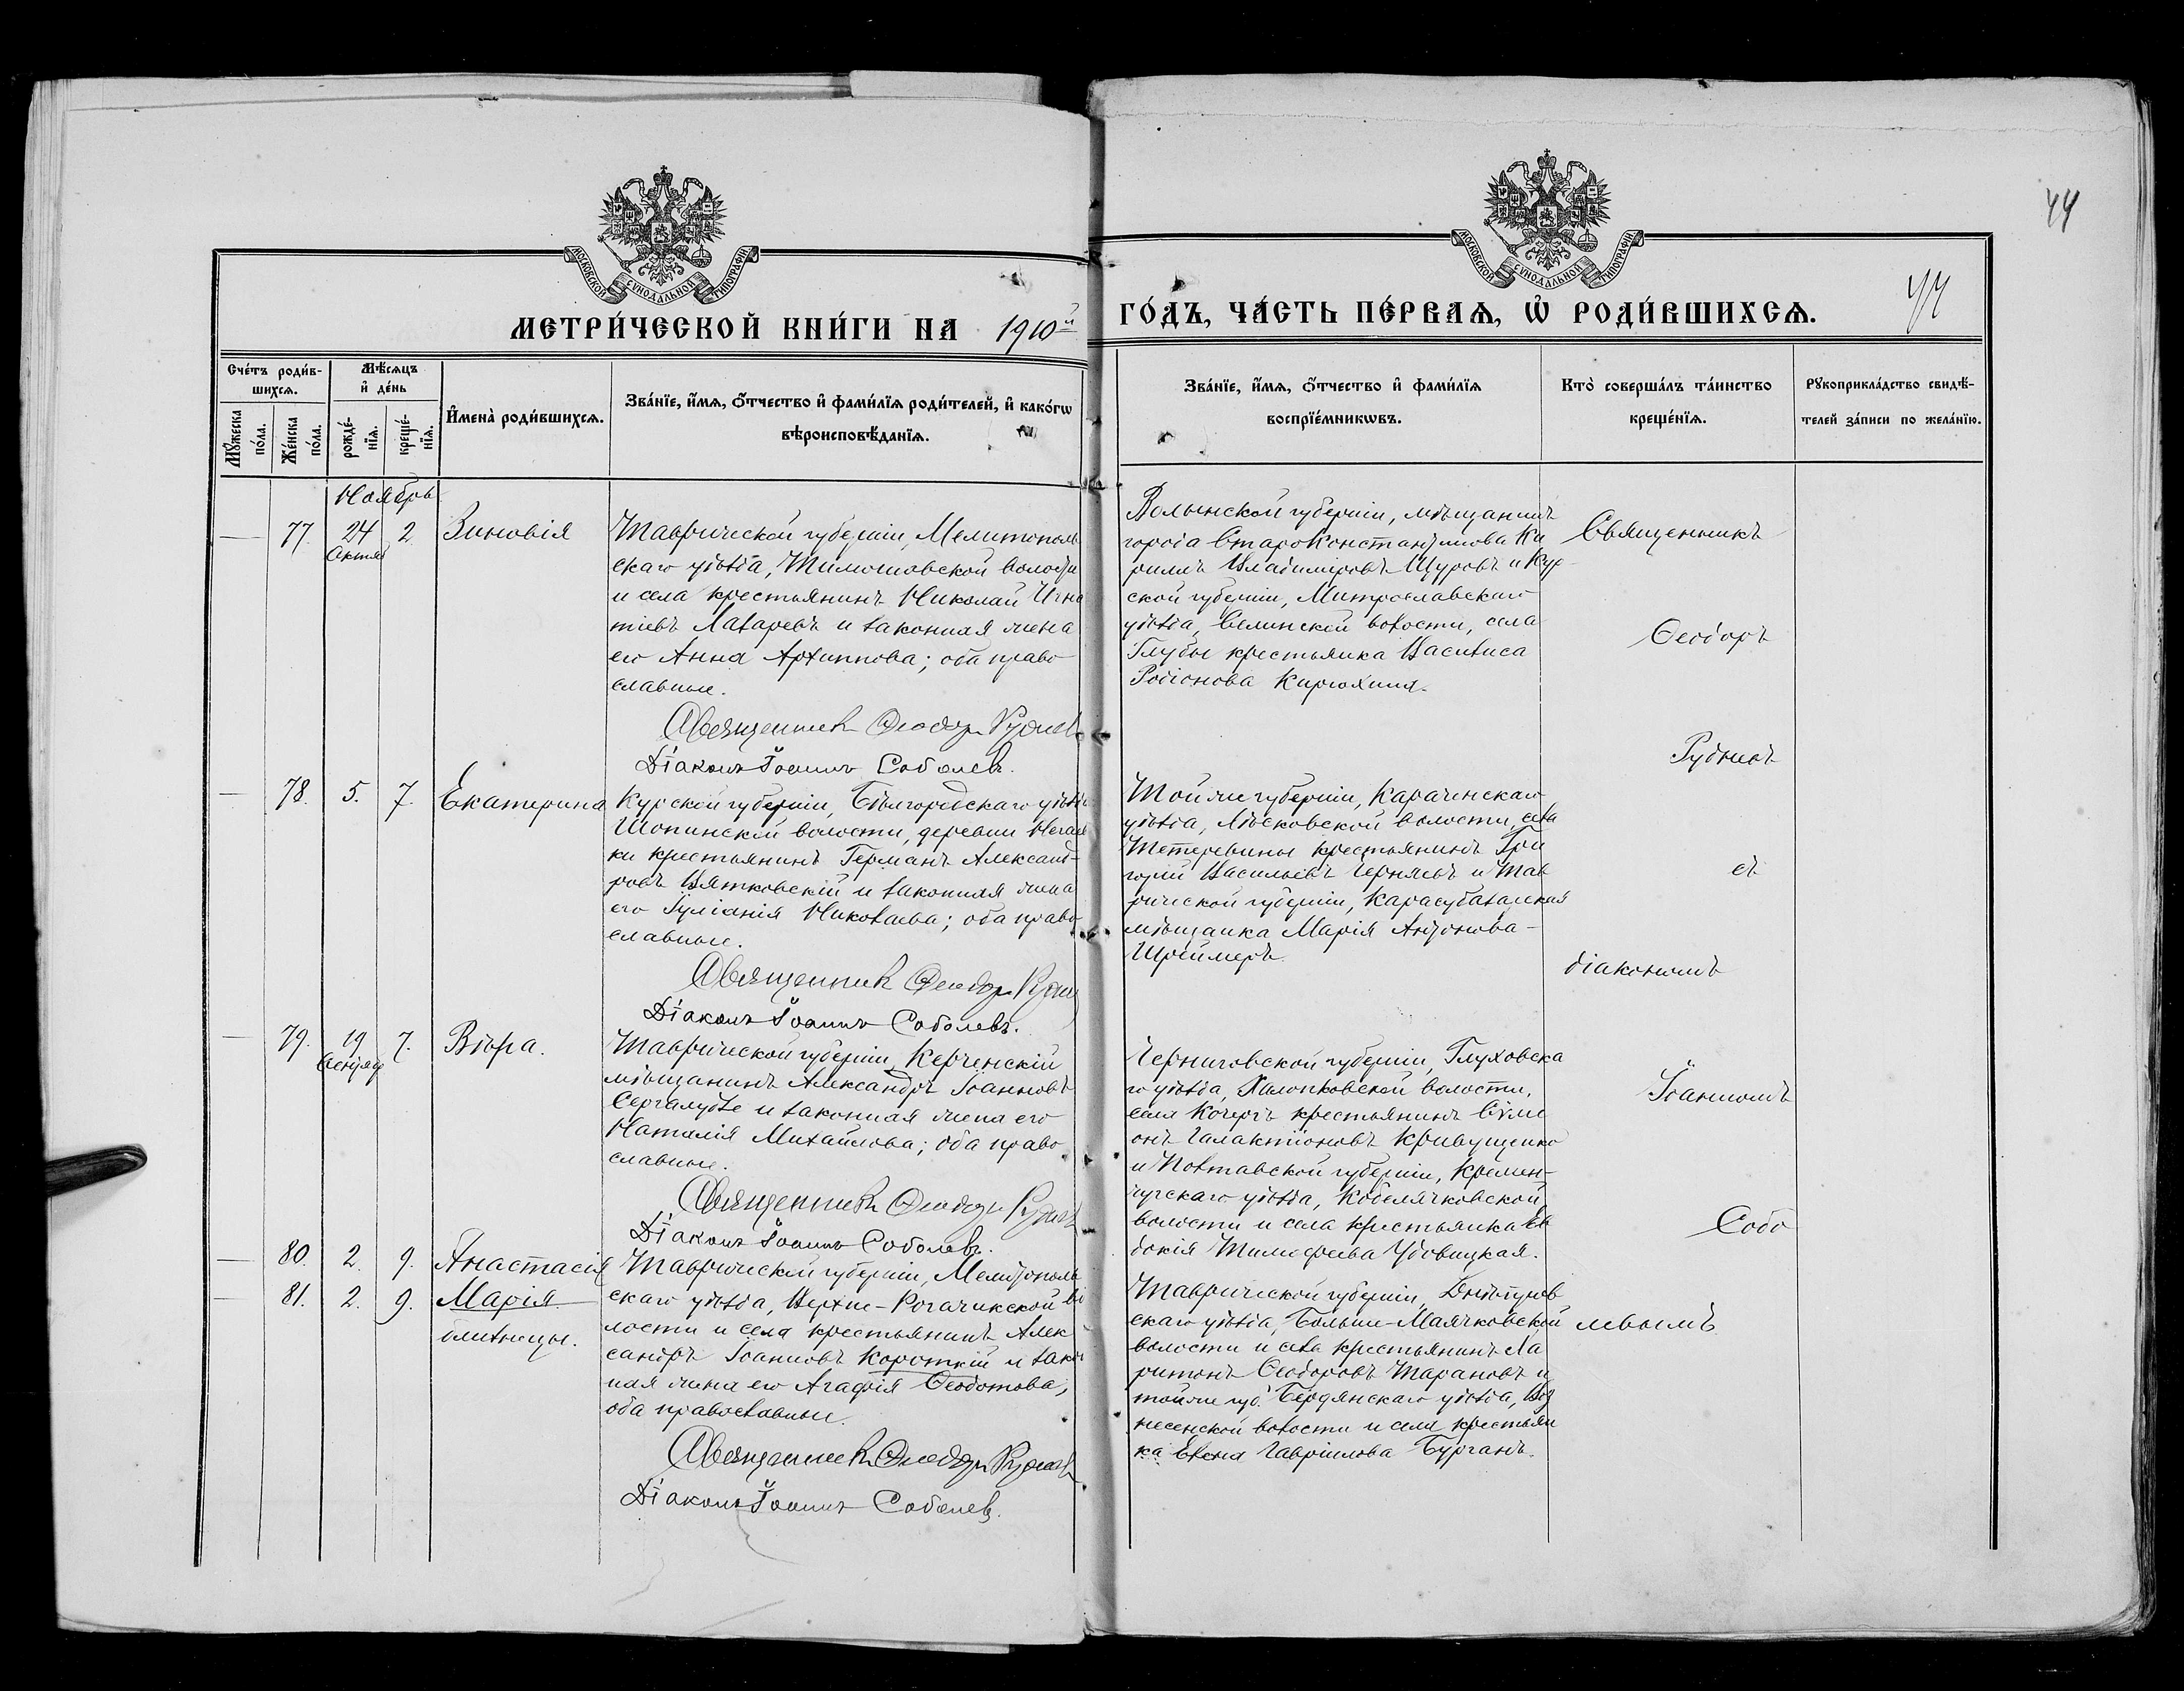 44
МОСКОВСКОЙ СѴНОДАЛЬНОЙ ТИПОГРАФІИ
МОСКОВСКОЙ СѴНОДАЛЬНОЙ ТИПОГРАФІИ
МЕТРИ́ЧЕСКОЙ КНИ́ГИ НА 1910й
ГО́ДЪ, ЧА́СТЬ ПЕ́РВАѦ, Ѽ РОДИ́ВШИХСѦ.
44
Сче́тъ роди́в-
шихсѧ.
Мꙋ́жеска
по́ла.
Же́нска
по́ла.
Мѣ́сяцъ
и҆ де́нь
рожде́-
нїѧ.
креще́-
нїѧ.
И҆мена̀ роди́вшихсѧ.
Зва́нїе, и҆́мѧ, ѻ҆́тчество и҆ фами́лїѧ роди́телей, и҆ како́гѡ
вѣроисповѣ́данїѧ.
Зва́нїе, и҆́мѧ, ѻ҆́тчество и҆ фами́лїѧ
воспрїе́мникѡвъ.
Кто̀ соверша́лъ та́инство
креще́нїѧ.
Рꙋкоприкла́дство свидѣ́-
телей за́писи по жела́нїю.
Ноябрь
— 77. 24 2 Зиновія
Октяб
Таврической губерніи, Мелитополь
скаго уѣзда, Тимошовской волости
и села крестьянинъ Николай Игна
тіевъ Лазаревъ и законная жена
его Анна Архиппова; оба право
славные.
Священникъ Ѳеодоръ Рудневъ
Діаконъ Іоаннъ Соболевъ.
Волынской губерніи, мѣщанинъ
города Староконстантинова Ки
риллъ Владиміровъ Щуровъ и Кур
ской губерніи,
уѣзда, волости, села
Глубы крестьянка Василиса
Родіонова
Священникъ
Ѳеодоръ
Рудневъ
— 78. 5. 7. Екатерина
Курской губерніи, Бѣлгородскаго уѣзда
Шопинской волости, деревни
ки крестьянинъ Германъ Александ-
ровъ Вятковскій и законная жена
его Іуліанія Николаева; оба право
славные.
Священникъ Ѳеодоръ Рудневъ
Діаконъ Іоаннъ Соболевъ.
Той же губерніи, Карачевскаго
уѣзда, волости, села
Тетеревины крестьянинъ Гри
горій Васильевъ Черняевъ и Тав
рической губерніи, Карасубазарская
мѣщанка Марія Антонова-
Шреймеръ.
съ
діакономъ
— 79. 19 7. Вѣра.
Сентяб
Таврической губерніи, Керченскій
мѣщанинъ Александръ Іоанновъ
и законная жена его
Наталія Михайлова; оба право
славные.
Священникъ Ѳеодоръ Рудневъ
Діаконъ Іоаннъ Соболевъ.
Черниговской губерніи, Глуховска
го уѣзда, волости,
села Кочергъ крестьянинъ Сѵме
онъ Галактіоновъ Кривущенко
и Полтавской губерніи, Кремен-
чугскаго уѣзда, Кобелячковской
волости и села крестьянка Ев
докія Тимофеева Удовицкая.
Іоанномъ
Собо
— 80. 2. 9. Анастасія
— 81. 2. 9. Марія
близнецы.
Таврической губерніи, Мелитополь
скаго уѣзда, Верхне-Рогачикской во
лости и села крестьянинъ Алек
сандръ Іоанновъ Короткій и закон
ная жена его Агафія Ѳеодотова;
оба православные.
Священникъ Ѳеодоръ Рудневъ
Діаконъ Іоаннъ Соболевъ.
Таврической губерніи, Днѣпров
скаго уѣзда, Больше-Маячковской
волости и села крестьянинъ Ха
ритонъ Ѳеодоровъ Тарановъ и
той же губ. Бердянскаго уѣзда, Воз
несенской волости и села крестьян
ка Елена Гавріилова Бурганъ.
левымъ